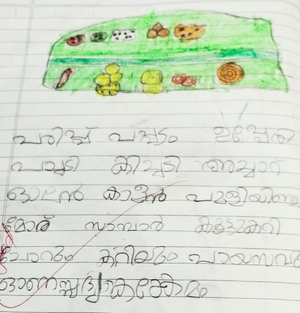 പരിപ്പ് പപ്പടം ഉപ്പേരി
പച്ചടി കിച്ചടി അച്ചാറ്
ഓലൻ കാളൻ പുളിയിഞ്ചി
മോര് സാമ്പാർ കൂട്ടുകറി
ചോറും കറിയും പായസവും
ഓണസദ്യ